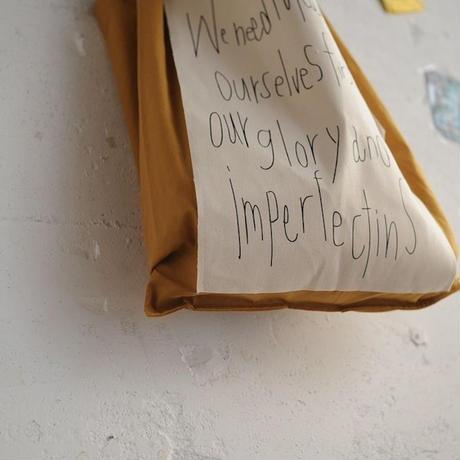 We need
ourselves
our glory and
imperfectinS